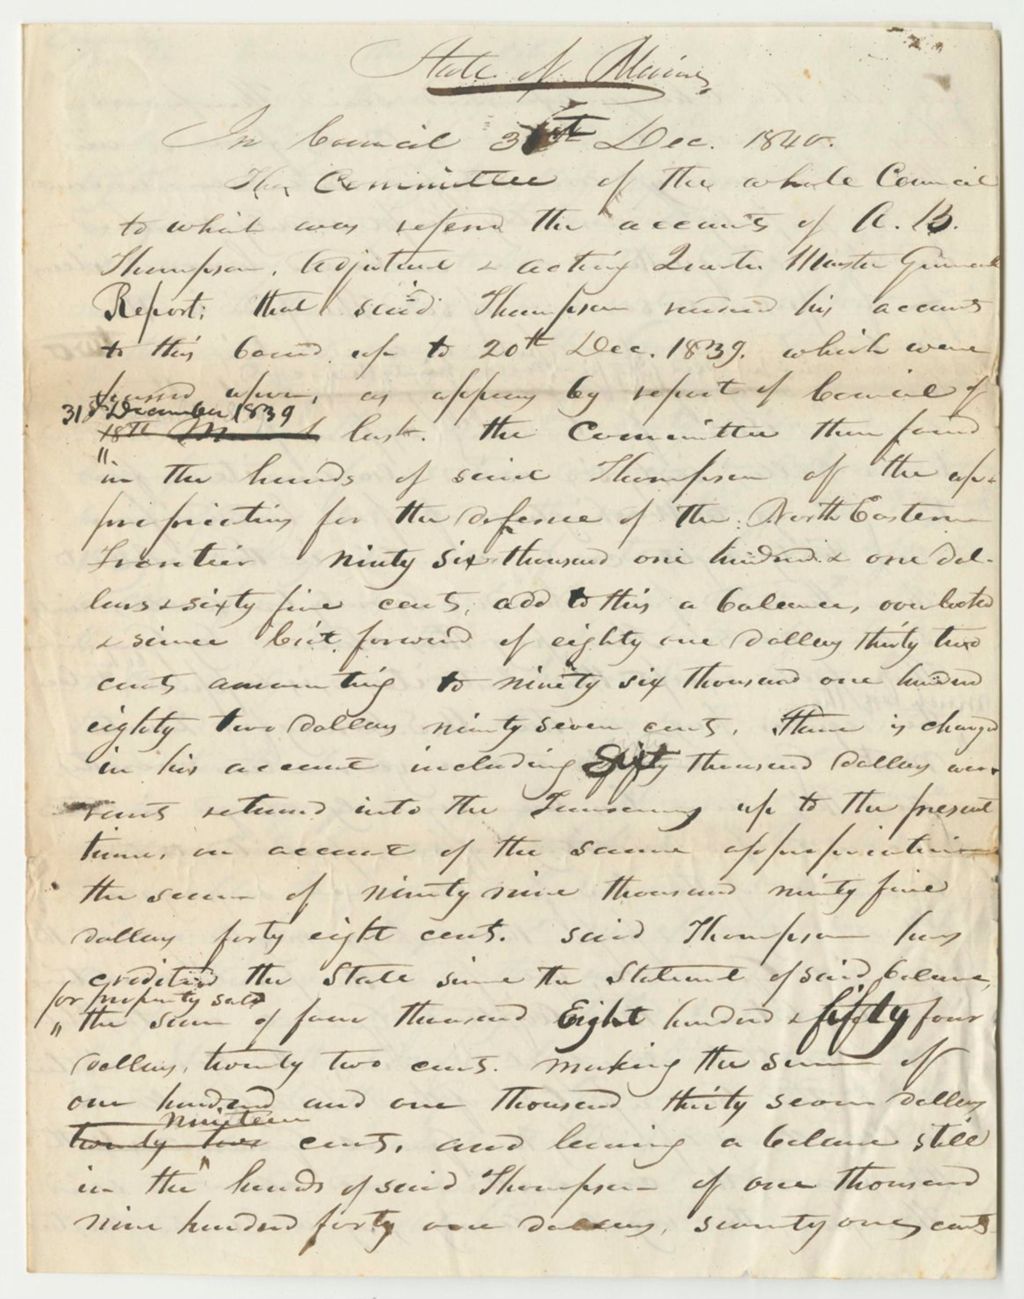 State of Maine
In Council 31st Dec. 1840.
The Committee of the whole Council
to which was referd the accounts of A. B.
Thompson, Adjutant & acting Quarter Master General
Report; that said Thompson rendered his accounts
to this board up to 20th Dec. 1839. which were
passed upon, as appears by report of Council of
31st December 1839
18th March last. the Committee then found
in the hands of said Thompson of the ap-
propriation for the defence of the North Eastern
Frontier ninety six thousand one hundred & one dol-
lars & sixty five cents, add to this a balance, overlooked
& since bro't forward of eighty one dollars thirty two
cents amounting to ninety six thousand one hundred
eighty two dollars ninety seven cents. There is charged
in his account including fifty thousand dollars war-
rants returned into the Treasury up to the present
time, on account of the same appropriation
the sum of ninety nine thousand ninety five
dollars forty eight cents. said Thompson has
credited the State since the Statement of said balance,
for property sold
the sum of four thousand Eight hundred & fifty four
dollars, twenty two cents. making the sum of
one hundred and one thousand thirty seven dollars
nineteen
twenty two cents, and leaving a balance still
in the hands of said Thompson of one thousand
nine hundred forty one dollars, seventy one cents